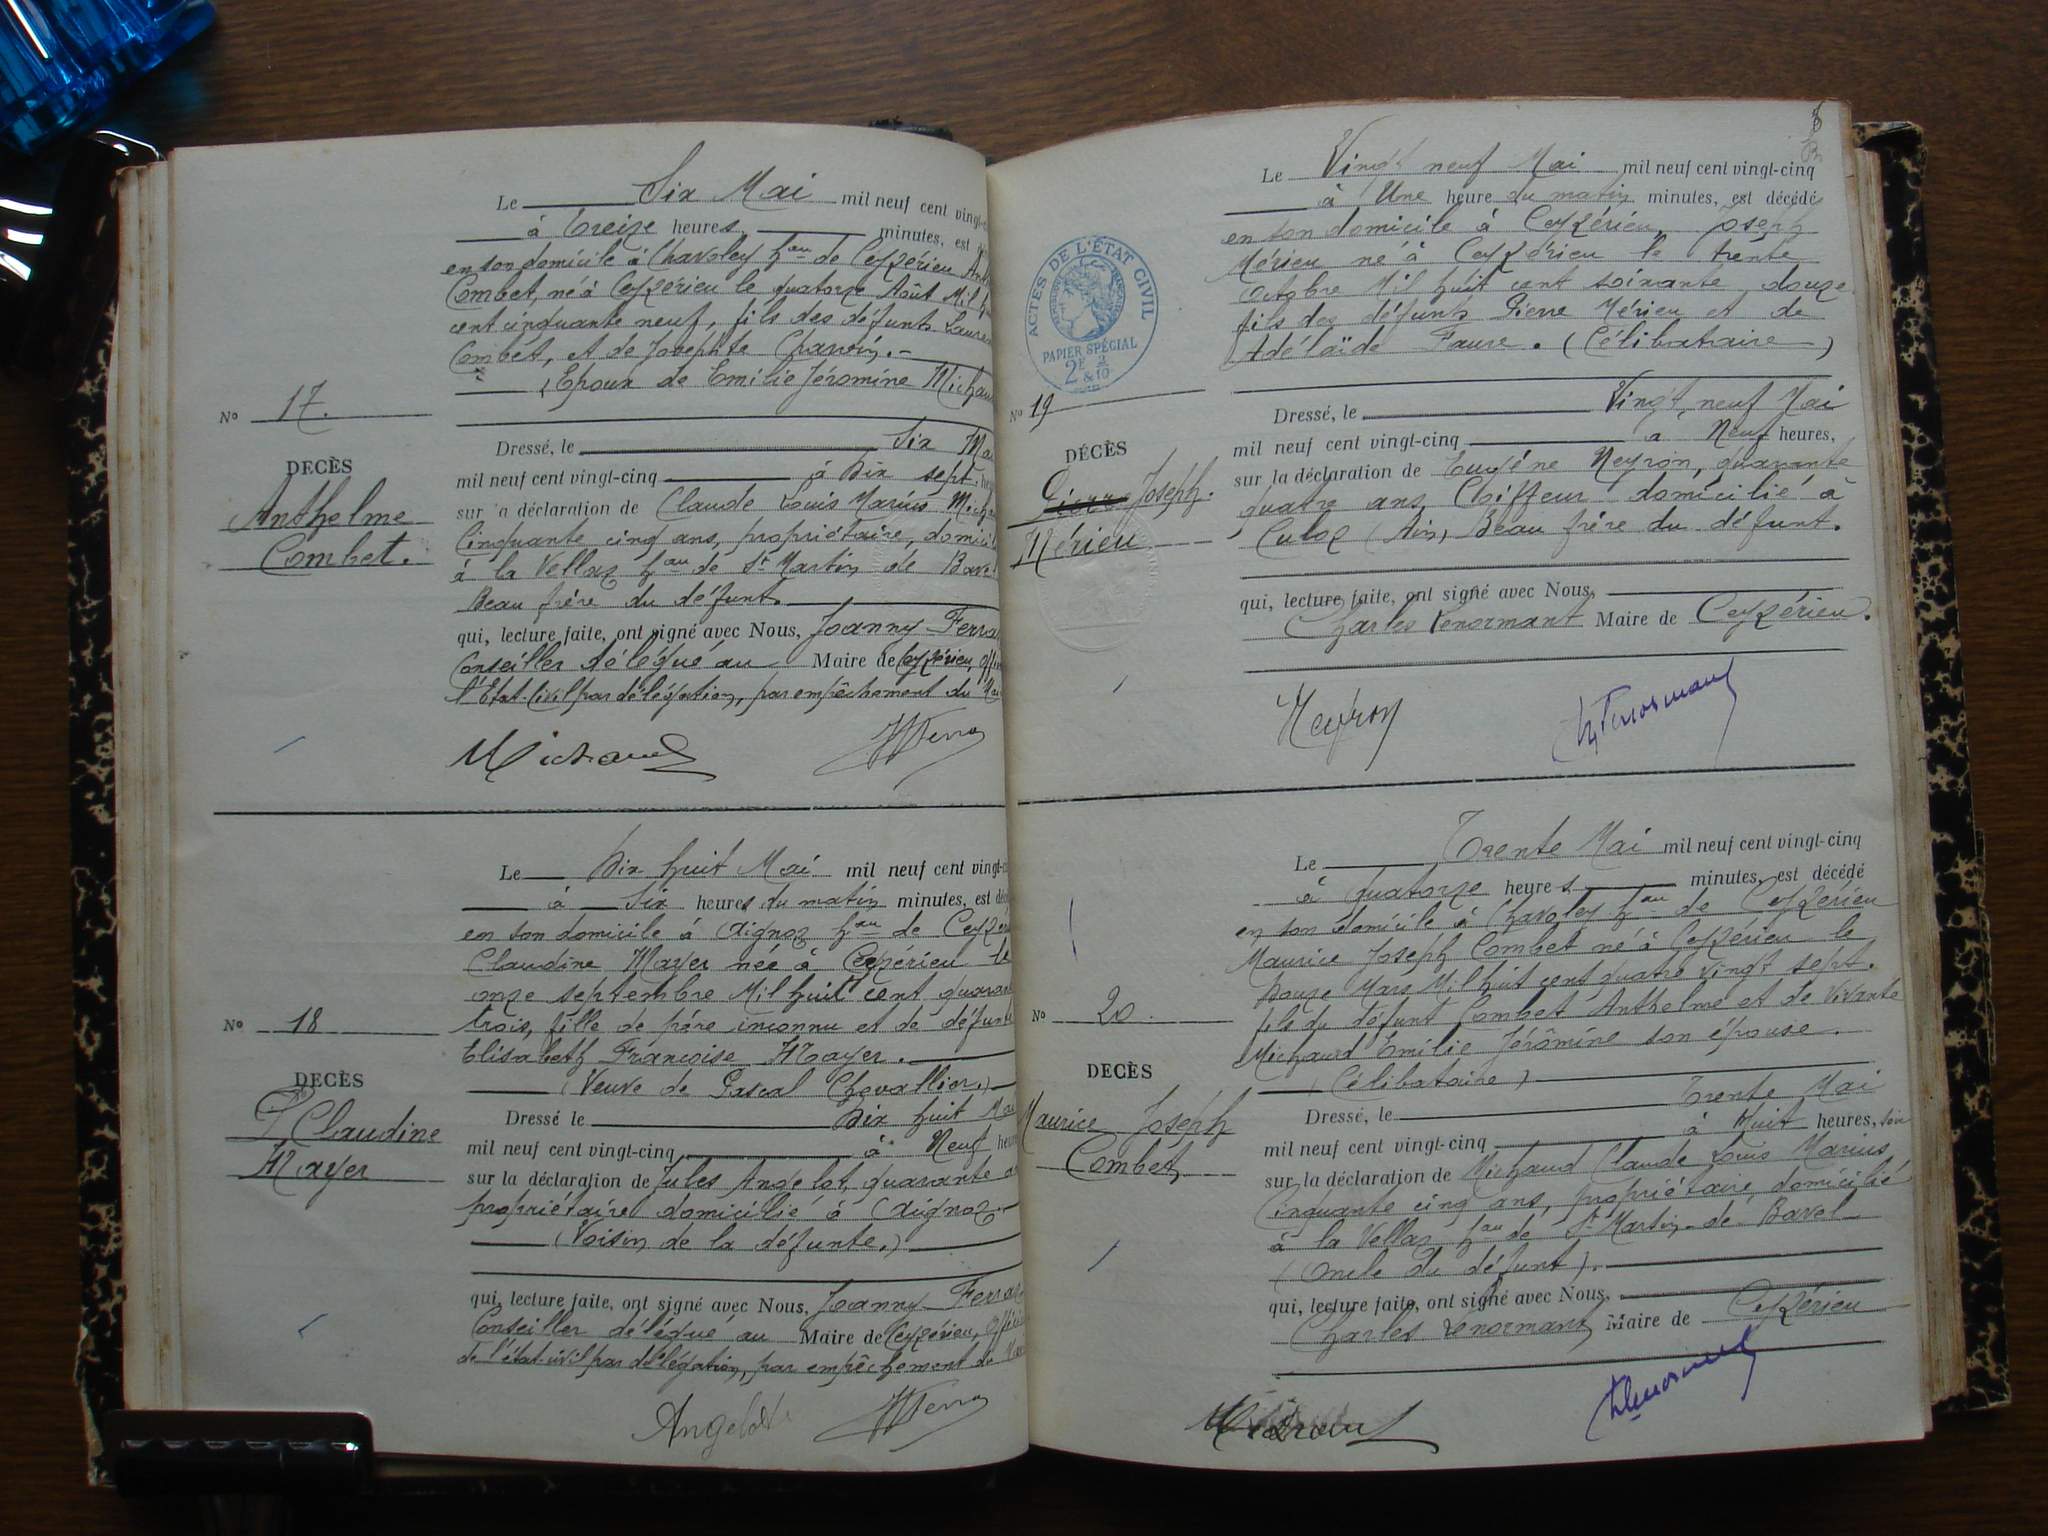 Le Six Mai mil neuf cent vingt-
à Treize heures minutes, est
en son domicile à Chavoley hau de Ceyzérieu
Combet, né à Ceyzérieu le quatorze Août Mil
cent cinquante neuf, fils des défunts
Combet, et de Josephte
(Epoux de Emilie Jéromine Michau
No 17.
DECÈS
Anthelme
Combet.
Dressé, le Six Ma
mil neuf cent vingt-cinq à Dix sept,
sur a déclaration de Claude Louis Marius
Cinquante cinq ans, propriétaire, domici
à la Vellaz hau de St Martin de Bavel
Beau frère du défunt.
qui, lecture faite, ont signé avec Nous, Joanny Ferra
Conseiller délégué au Maire de Ceyzérieu,
l'Etat-Civil par délégation, par empêchement du
Michaud
Le Dix huit Mai mil neuf cent vingt-
à Six heures du matin minutes, est
en son domicile à Aignoz hau de Ceyzér
Claudine Mayer née à Ceyzérieu le
onze septembre Mil huit cent quaran
trois, fille de père inconnu et de défunte
Elisabeth Françoise Mayer.
(Veuve de Pascal Chevallier.)
No 18
DECÈS
Claudine
Mayer
Dressé le Dix huit Mai
mil neuf cent vingt-cinq à Neuf heur
sur la déclaration de Jules Angelot, quarante
propriétaire domicilié à Aignoz
(Voisin de la défunte.)
qui, lecture faite, ont signé avec Nous, Joanny Ferra
Conseiller délégué au Maire de Ceyzérieu,
de l'état-civil par délégation, par empêchement du
Angelot
Le Vingt neuf Mai mil neuf cent vingt-cinq
à Une heure du matin minutes, est décédé
en son domicile à Ceyzérieu, Joseph
Mérieu né à Ceyzérieu le trente
Octobre Mil huit cent soixante douze
fils des défunts Pierre Mérieu et de
Adélaïde Faure. (Célibataire)
ACTES DE L'ÉTAT CIVIL
PAPIER SPÉCIAL
2F & 2/10
No 19
DÉCÈS
Pierre Joseph.
Mérieu
Dressé, le Vingt neuf Mai
mil neuf cent vingt-cinq a Neuf heures,
sur la déclaration de Eugène Neyron, quarante
quatre ans, Coiffeur domicilié à
Culoz (Ain) Beau frère du défunt.
qui, lecture faite, ont signé avec Nous,
Charles Lenormant Maire de Ceyzérieu.
Neyron
Le Trente Mai mil neuf cent vingt-cinq
à Quatorze heures minutes, est décédé
en son domicile à Chavoley hau de Ceyzérieu
Maurice Joseph Combet né à Ceyzérieu le
Douze Mars Mil huit cent quatre vingt sept.
fils du défunt Combet Anthelme et de vivante
Michaud Emilie Jérômine son épouse.
(Célibataire)
No 20.
DECÈS
Maurice Joseph
Combet
Dressé, le Trente Mai
mil neuf cent vingt-cinq à Huit heures, soir
sur la déclaration de Michaud Claude Louis Marius
Cinquante cinq ans, propriétaire, domicilié
à la Vellaz hau de St Martin-de-Bavel
(Oncle du défunt).
qui, lecture faite, ont signé avec Nous,
Charles Lenormant Maire de Ceyzérieu
Michaud